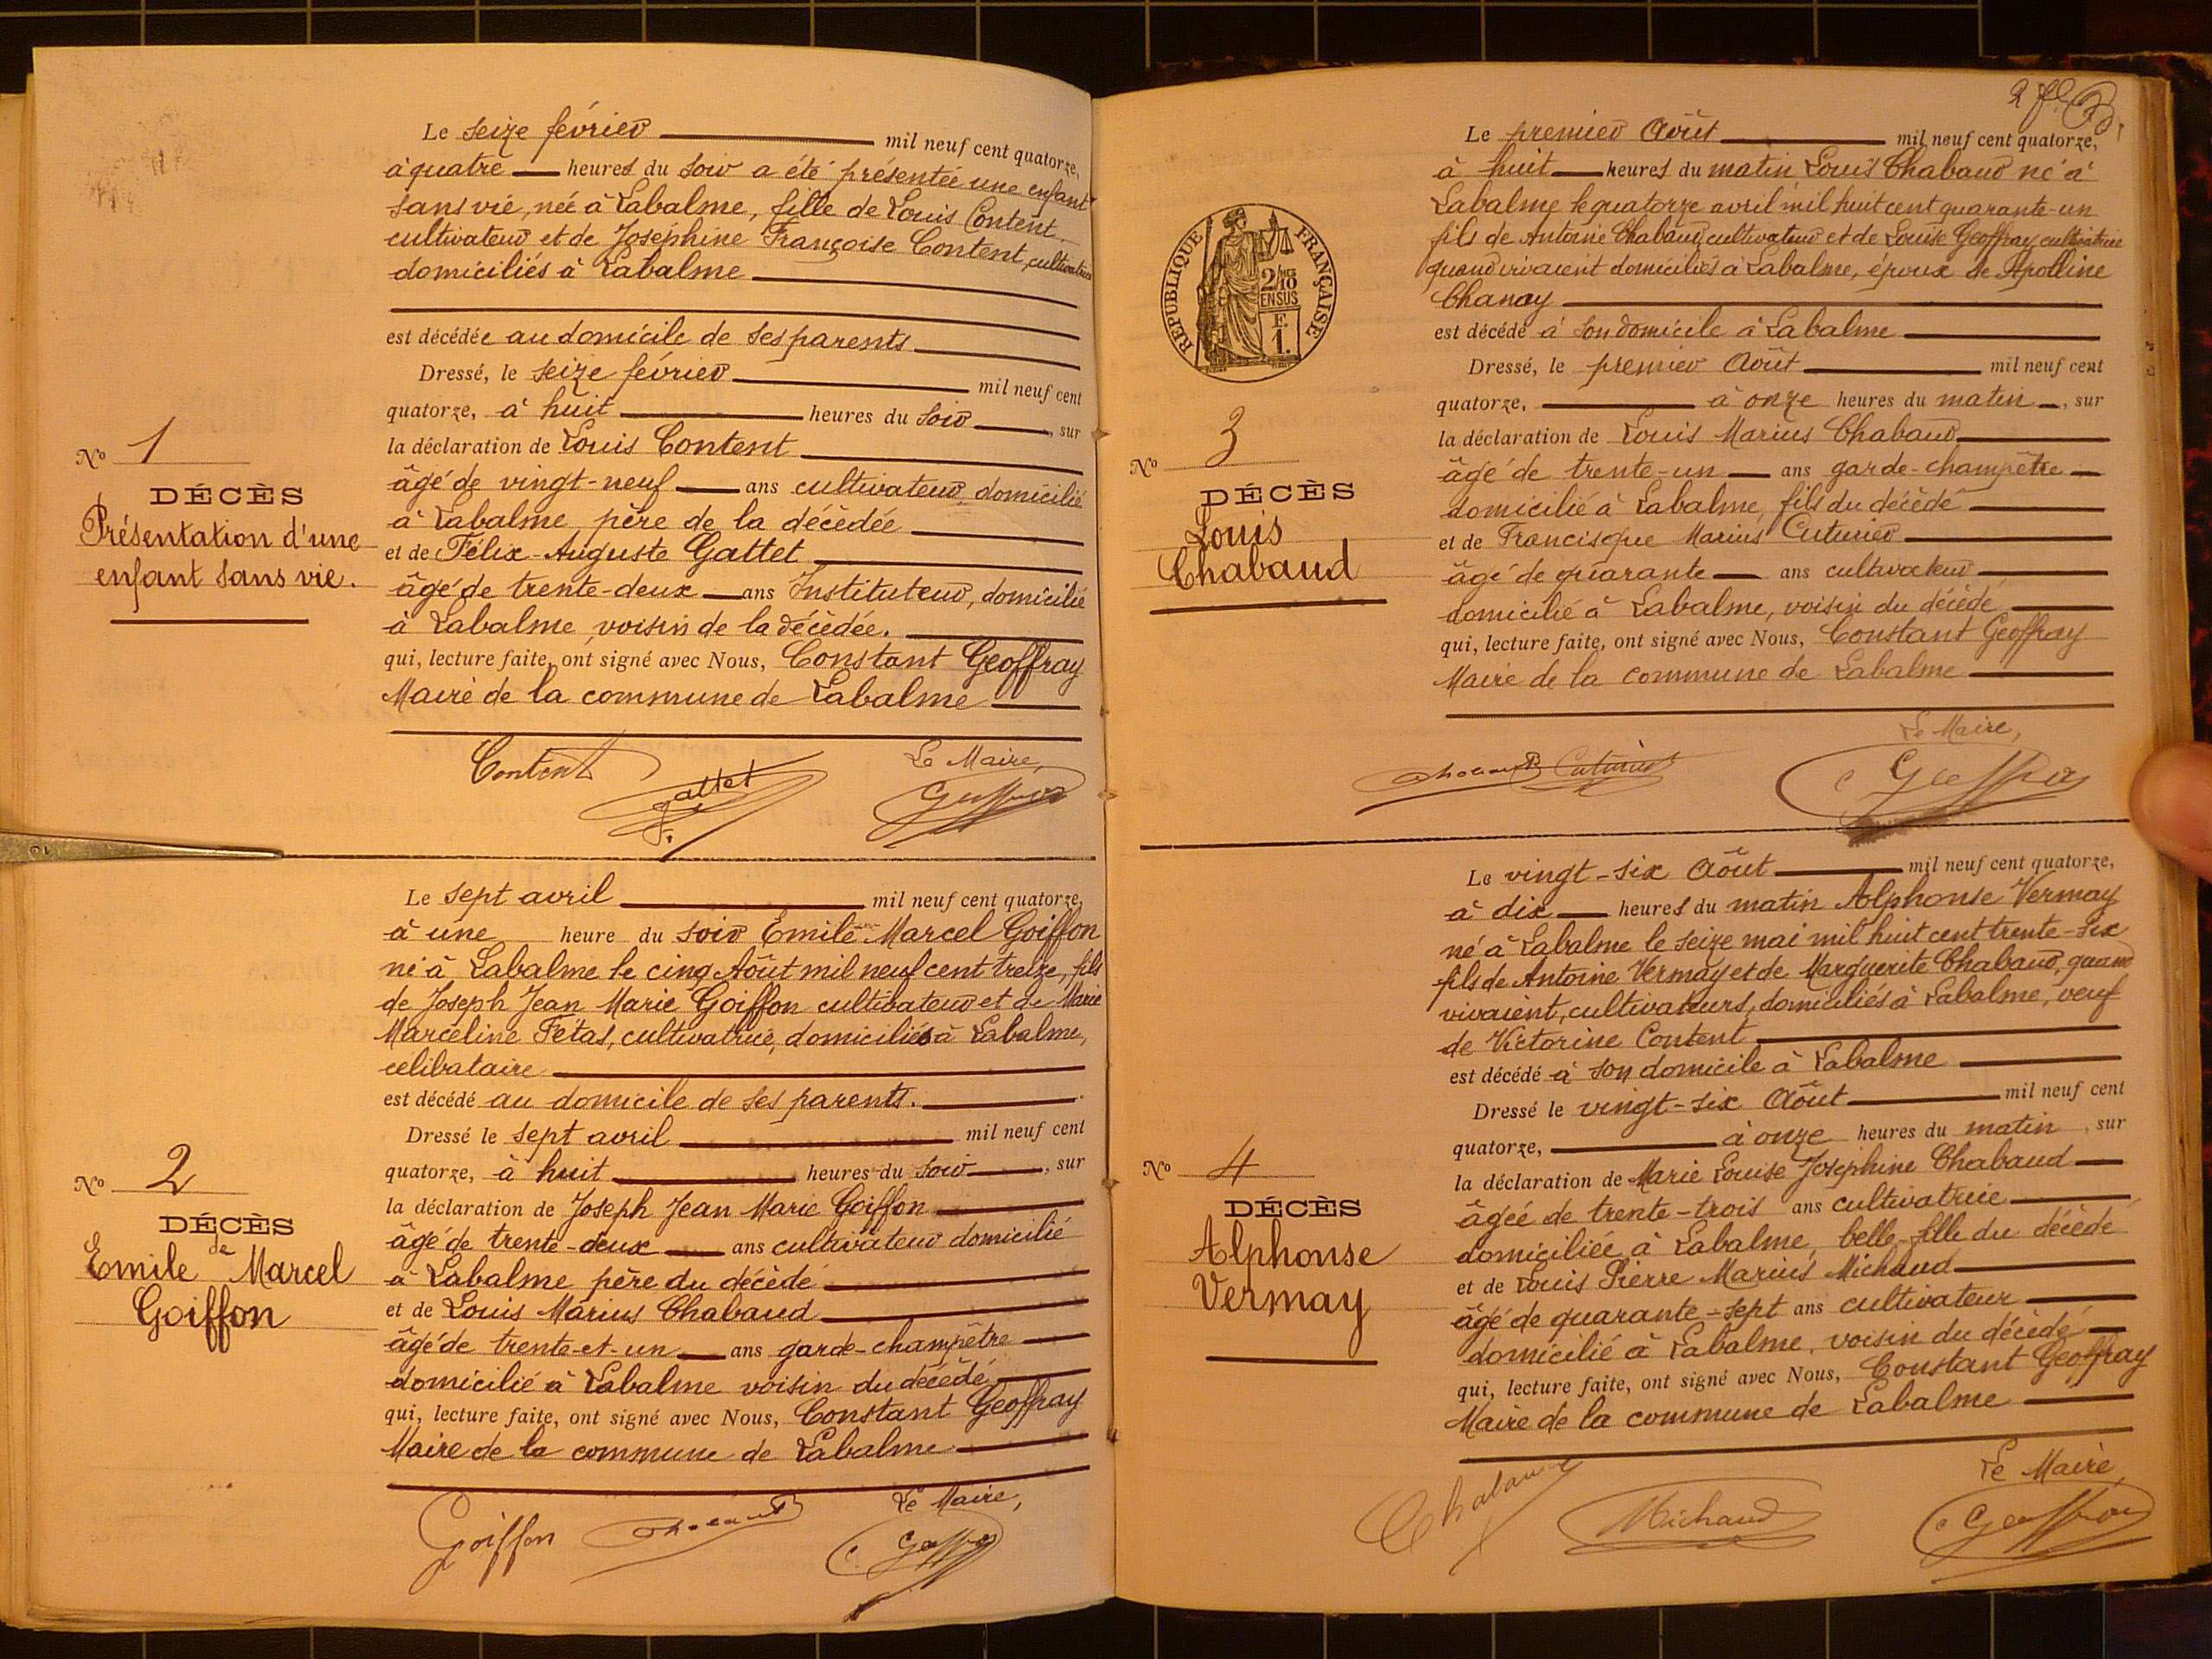 Le seize février mil neuf cent quatorze,
à quatre heures du soir a été présentée une enfant
sans vie, née à Labalme, fille de Louis Content
cultivateur et de Joséphine Françoise Content, cultivatrice
domiciliés à Labalme
est décédée au domicile de ses parents
Dressé, le seize février mil neuf cent
quatorze, à huit heures du soir, sur
la déclaration de Louis Content
âgé de vingt-neuf ans cultivateur, domicilié
à Labalme, père de la décédée
et de Félix-Auguste Gattet
âgé de trente-deux ans Instituteur, domicilié
à Labalme, voisin de la décédée.
qui, lecture faite, ont signé avec Nous, Constant Geoffray
Maire de la commune de Labalme
No 1
DÉCÈS
Présentation d'une
enfant sans vie.
Content
gattet
Le Maire,
Le sept avril mil neuf cent quatorze,
à une heure du soir Emile Marcel Goiffon
né à Labalme le cinq Août mil neuf cent treize, fils
de Joseph Jean Marie Goiffon cultivateur et de Marie
Marceline Fétas, cultivatrice, domiciliés à Labalme,
célibataire
est décédé au domicile de ses parents.
Dressé le sept avril mil neuf cent
quatorze, à huit heures du soir, sur
la déclaration de Joseph Jean Marie Goiffon
âgé de trente-deux ans cultivateur domicilié
à Labalme père du décédé
et de Louis Marius Chabaud
âgé de trente-et-un ans garde-champêtre
domicilié à Labalme voisin du décédé
qui, lecture faite, ont signé avec Nous, Constant Geoffray
Maire de la commune de Labalme
No 2
DÉCÈS
de
Emile Marcel
Goiffon
Goiffon
Chabaud
Le Maire,
2
Le premier Août mil neuf cent quatorze,
à huit heures du matin Louis Chabaud né à
Labalme le quatorze avril mil huit cent quarante-un
fils de Antoine Chabaud, cultivateur et de Louise Geoffray, cultivatrice
quand vivaient domiciliés à Labalme, époux de Apolline
Chanay
est décédé à son domicile à Labalme
Dressé, le premier Août mil neuf cent
quatorze, à onze heures du matin, sur
la déclaration de Louis Marius Chabaud
âgé de trente-un ans garde-champêtre
domicilié à Labalme, fils du décédé
et de Francisque Marius Cuturier
âgé de quarante ans cultivateur
domicilié à Labalme, voisin du décédé
qui, lecture faite, ont signé avec Nous, Constant Geoffray
Maire de la commune de Labalme
REPUBLIQUE FRANÇAISE
2/10
EN SUS
F.
1.
No 3
DÉCÈS
Louis
Chabaud
Chabaud Cuturier
Le Maire,
Le vingt-six Août mil neuf cent quatorze,
à dix heures du matin Alphonse Vermay
né à Labalme le seize mai mil huit cent trente-six
fils de Antoine Vermay et de Marguerite Chabaud, quand
vivaient, cultivateurs, domiciliés à Labalme, veuf
de Victorine Content
est décédé à son domicile à Labalme
Dressé le vingt-six Août mil neuf cent
quatorze, à onze heures du matin, sur
la déclaration de Marie Louise Joséphine Chabaud
âgée de trente-trois ans cultivatrice
domiciliée à Labalme, belle-fille du décédé
et de Louis Pierre Marius Michaud
âgé de quarante-sept ans cultivateur
domicilié à Labalme, voisin du décédé
qui, lecture faite, ont signé avec Nous, Constant Geoffray
Maire de la commune de Labalme
No 4
DÉCÈS
Alphonse
Vermay
Chabaud
Michaud
Le Maire